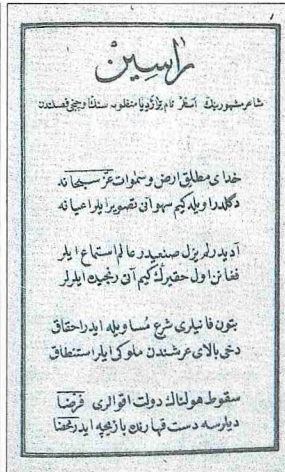 راسین
شاعر مشهورینك استر نام تراژدیا منظومه سنك اوچنجی فصلندن
خدای مطلق ارض و سموات عز سبحانه
دگلدر اویله کیم سهوا نی تصویر ایلر اعیانه
آدیدر لم یزل صنعیدر عالم استماع ایلر
فغانن اول حقیرك کیم آنی رنجیده ایلرلر
بتون فانیلری شرع مساویله ایدر احقاق
دخی بالای عرشندن ملوکی ایلر استنطاق
سقوط هولناك دولت اقوالری فرضا
دیلرسه دست قهارنده بازیچه ایدر محضا